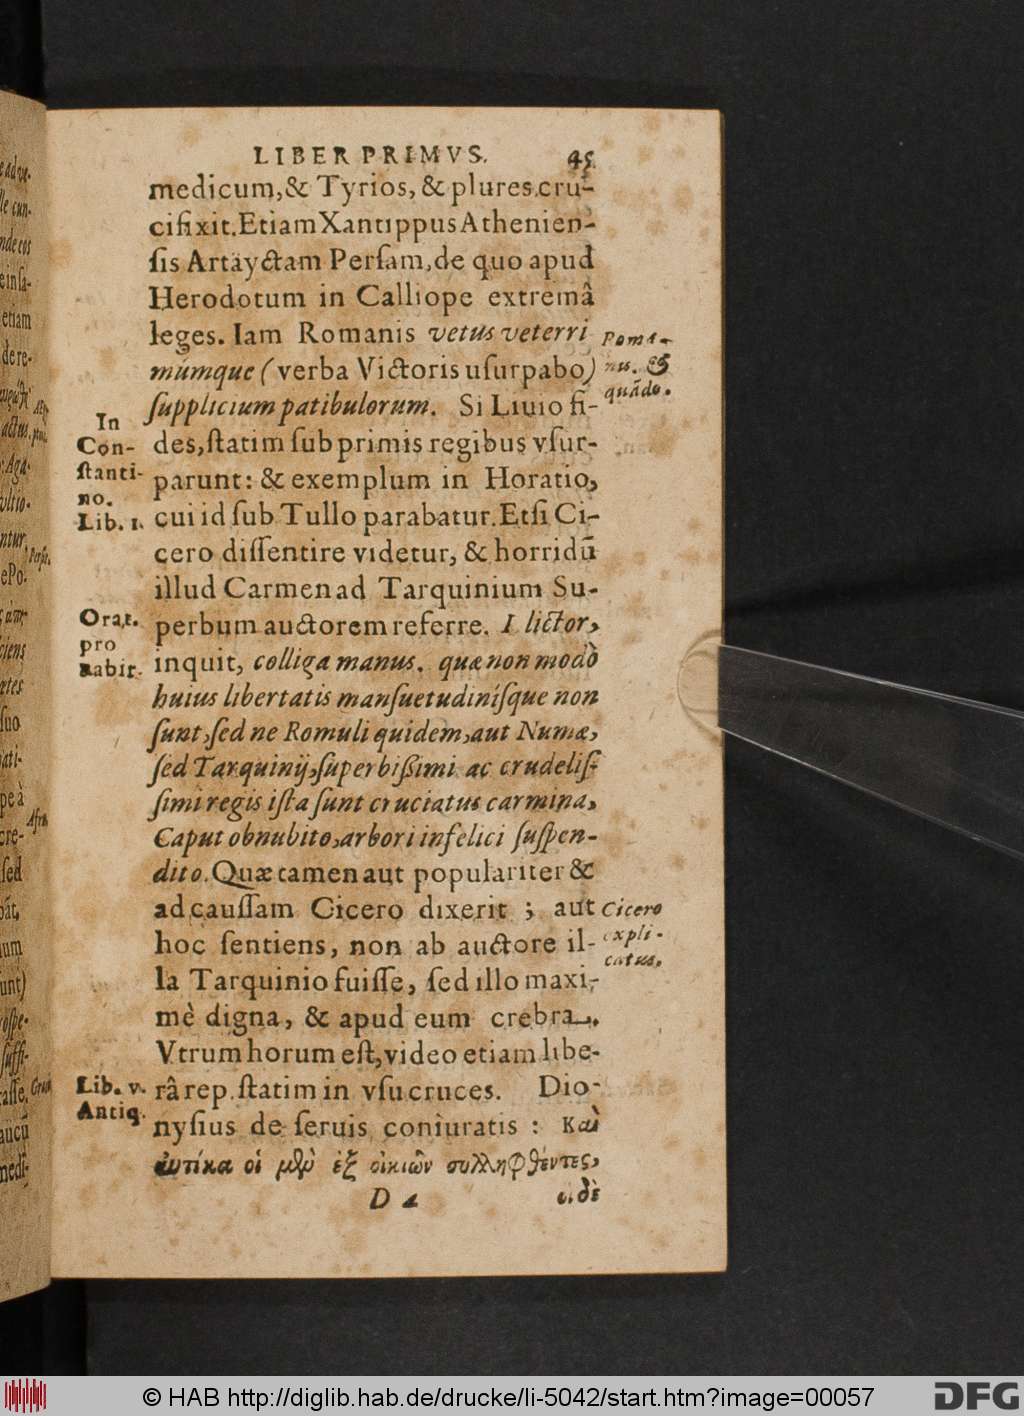 LIBER PRIMVS. 45
medicum, & Tyrios, & plures cru-
cifixit. Etiam Xantippus Athenien-
sis Artayctam Persam, de quo apud
Herodotum in Calliope extremâ
leges. Iam Romanis vetus veterri
múmque (verba Victoris usurpabo)
supplicium patibulorum. Si Liuio fi-
des, statim sub primis regibus vsur-
parunt: & exemplum in Horatio,
cui id sub Tullo parabatur. Etsi Ci-
cero dissentire videtur, & horridū
illud Carmen ad Tarquinium Su-
perbum auctorem referre. I lictor,
inquit, colliga manus. quæ non modò
huius libertatis mansuetudinísque non
sunt, sed ne Romuli quidem, aut Numæ,
sed Tarquinij, superbißimi ac crudelis-
simi regis ista sunt cruciatus carmina,
Caput obnubito, arbori infelici suspen-
dito. Quæ tamen aut populariter &
ad caussam Cicero dixerit ; aut
hoc sentiens, non ab auctore il-
la Tarquinio fuisse, sed illo maxi-
mè digna, & apud eum crebra.
Vtrum horum est, video etiam libe-
râ rep. statim in vsu cruces. Dio-
nysius de seruis coniuratis : Καὶ
αὐτίκα οἱ μὲν ἐξ οἰκιῶν συλληφθέντες,
D 4
οἱ δὲ
In
Con-
stanti-
no.
Lib. 1.
Orat.
pro
Rabir.
Lib. v.
Antiq.
Roma-
nu. &
quādo.
Cicero
expli-
catus.
© HAB http://diglib.hab.de/drucke/li-5042/start.htm?image=00057
DFG